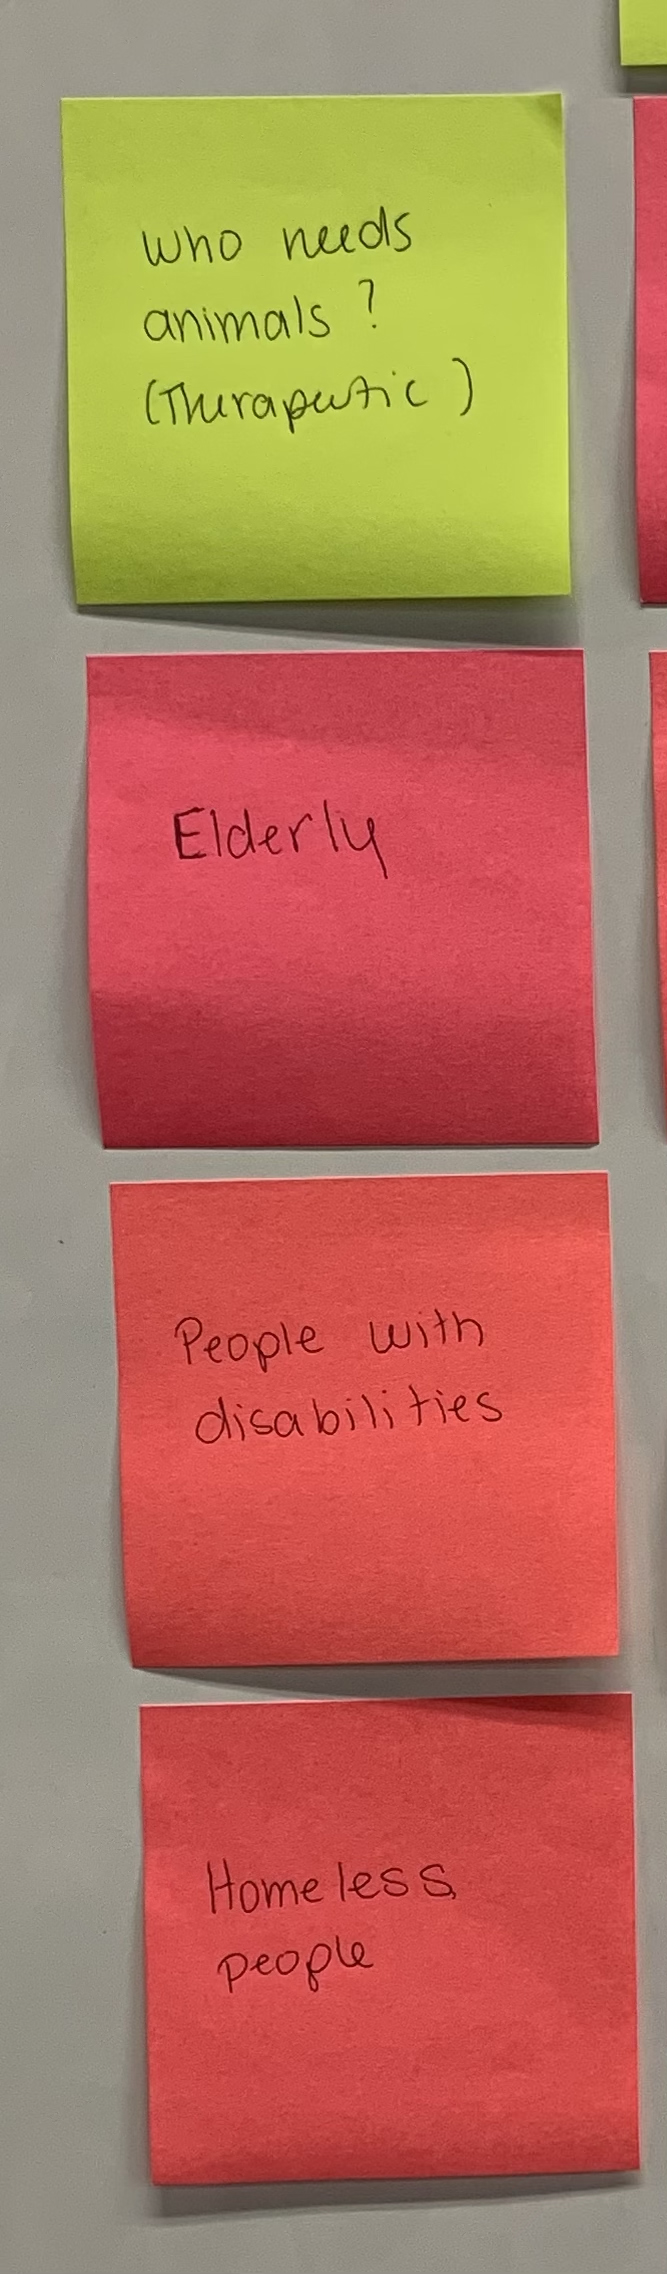 who needs
animals?
(Therapeutic)
Elderly
People with
disabilities
Homeless
people